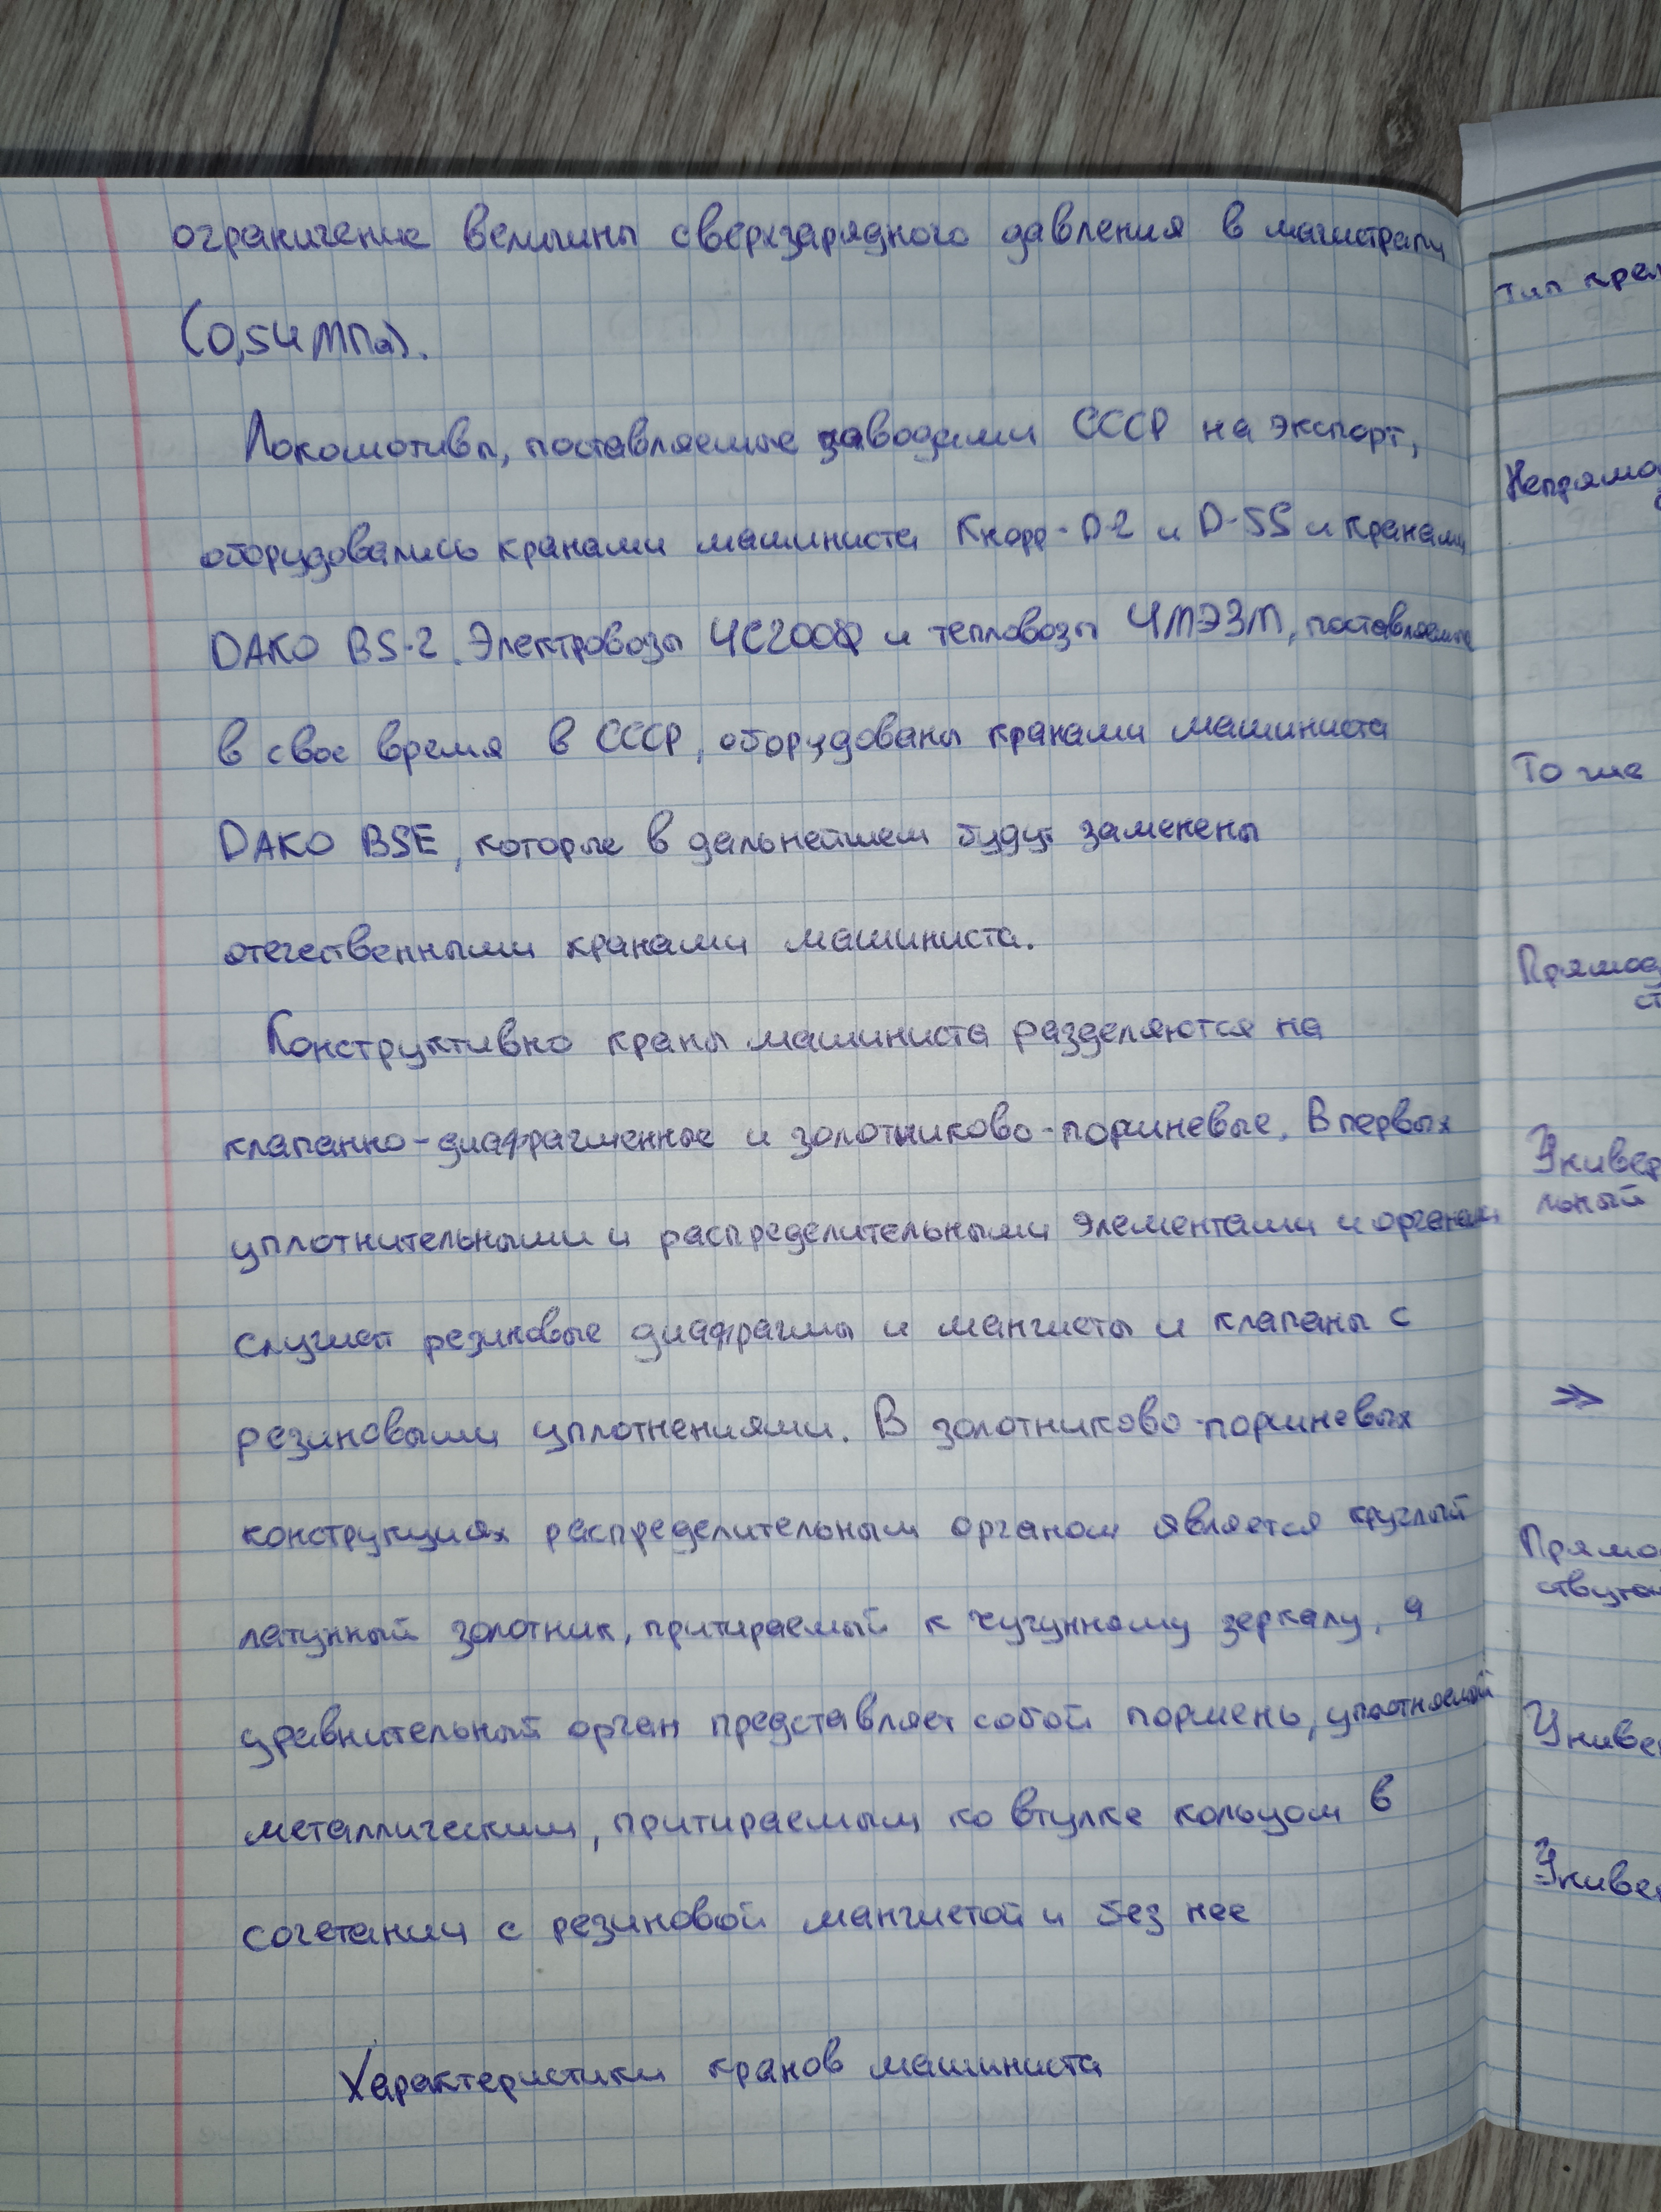 ограничение величины сверхзарядного давления в магистрали
(0,54 МПа).
Локомотивы, поставляемые заводами СССР на экспорт,
оборудовались кранами машиниста Кнорр-D-2 и D-5S и кранами
DAKO BS-2. Электровозы ЧС200Ф и тепловозы ЧМЭ3М, поставляемые
в свое время в СССР, оборудованы кранами машиниста
DAKO BSE, которые в дальнейшем будут заменены
отечественными кранами машиниста.
Конструктивно краны машиниста разделяются на
клапанно-диафрагменные и золотниково-поршневые. В первых
уплотнительными и распределительными элементами и органами
служат резиновые диафрагмы и манжеты и клапаны с
резиновыми уплотнениями. В золотниково-поршневых
конструкциях распределительным органом является круглый
латунный золотник, притираемый к чугунному зеркалу, а
уравнительный орган представляет собой поршень, уплотняемый
металлическим, притираемым ко втулке кольцом в
сочетании с резиновой манжетой и без нее
Характеристики кранов машиниста
Тип кра
Непрямо
То же
Прямод
ст
Универ
льный
≫
Прямо
ствую
Униве
Униве